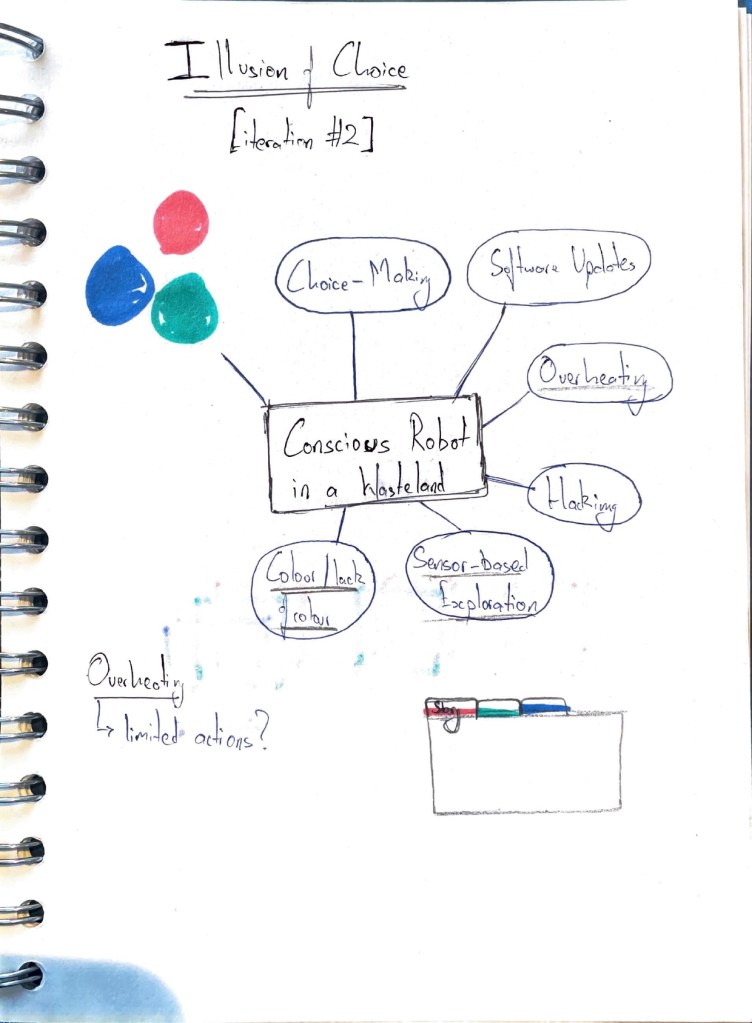 Illusion of Choice
[iteration #2]
Choice-Making
Software Updates
Overheating
Conscious Robot
in a Wasteland
Hacking
Colour/lack
of colour
Sensor-based
Exploration
Overheating
↳ limited actions?
Story